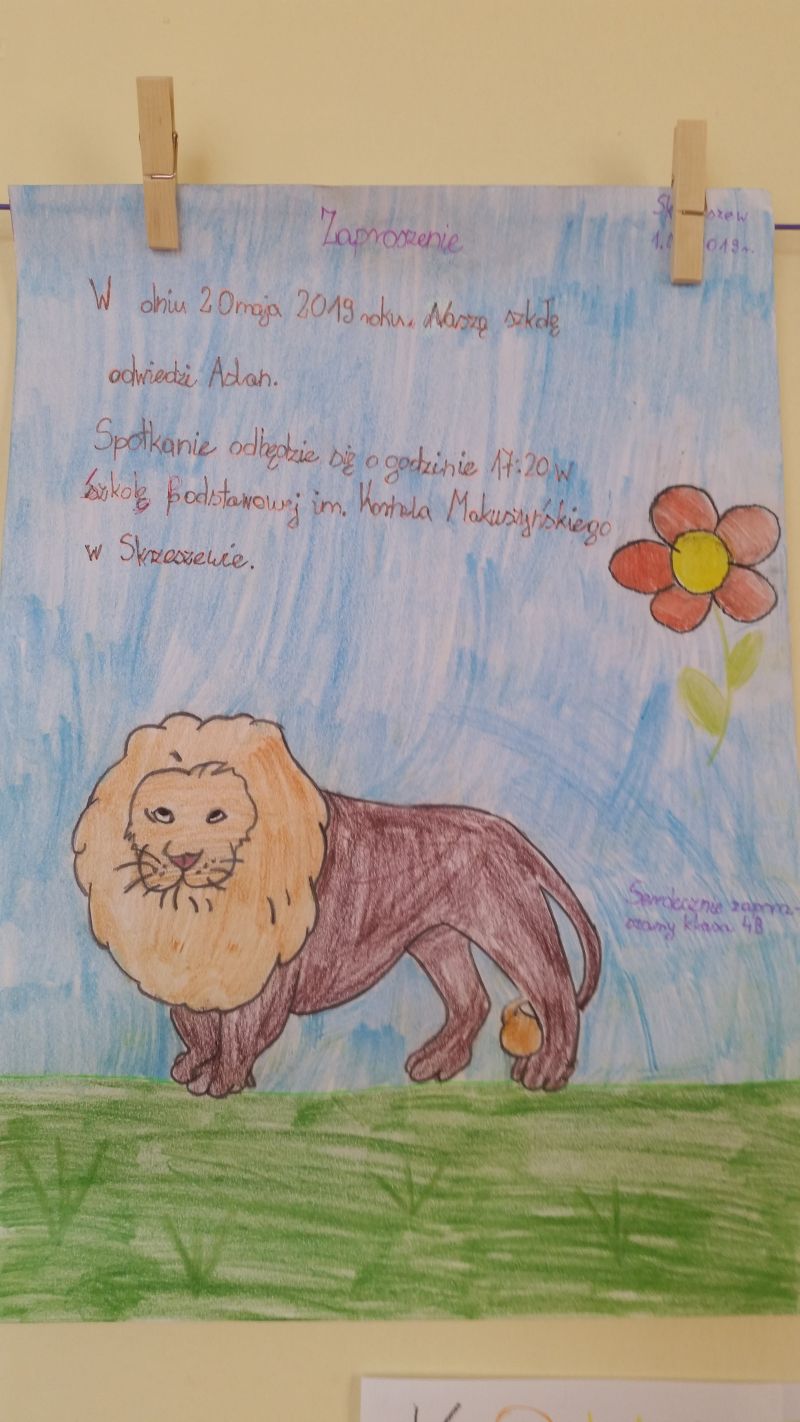 Zaproszenie
W dniu 20 maja 2019 roku. Naszę szkołę
odwiedzi Aslan.
Spotkanie odbędzie się o godzinie 17:20 w
Szkolę Podstawowej im. Kornela Makuszyńskiego
w Skrzeszewie.
Serdecznie zapra-
szamy klasa 4B